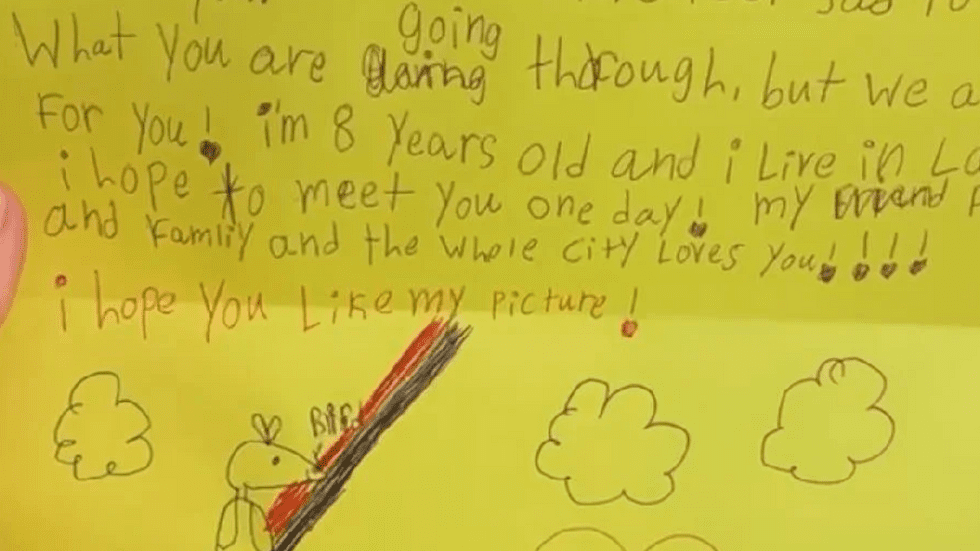 going
What You are through, but we a
For You! i'm 8 Years old and i Live in Lo
i hope to meet you one day! my
and Famliy and the whole City Loves you!!!!
i hope You Like my Picture!